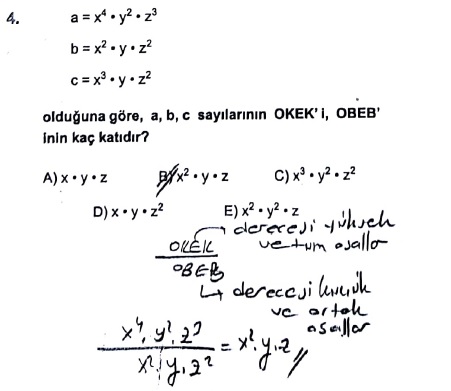 4. a = x⁴ • y² • z³
b = x² • y • z²
c = x³ • y • z²
olduğuna göre, a, b, c sayılarının OKEK' i, OBEB'
inin kaç katıdır?
A) x • y • z B) x² • y • z C) x³ • y² • z²
D) x • y • z² E) x² • y² • z
OKEK → derecesi yüksek
ve tüm asallar
OBEB
↳ derecesi küçük
ve ortak
asallar
x⁴, y², z³
x², y, z² = x². y. z